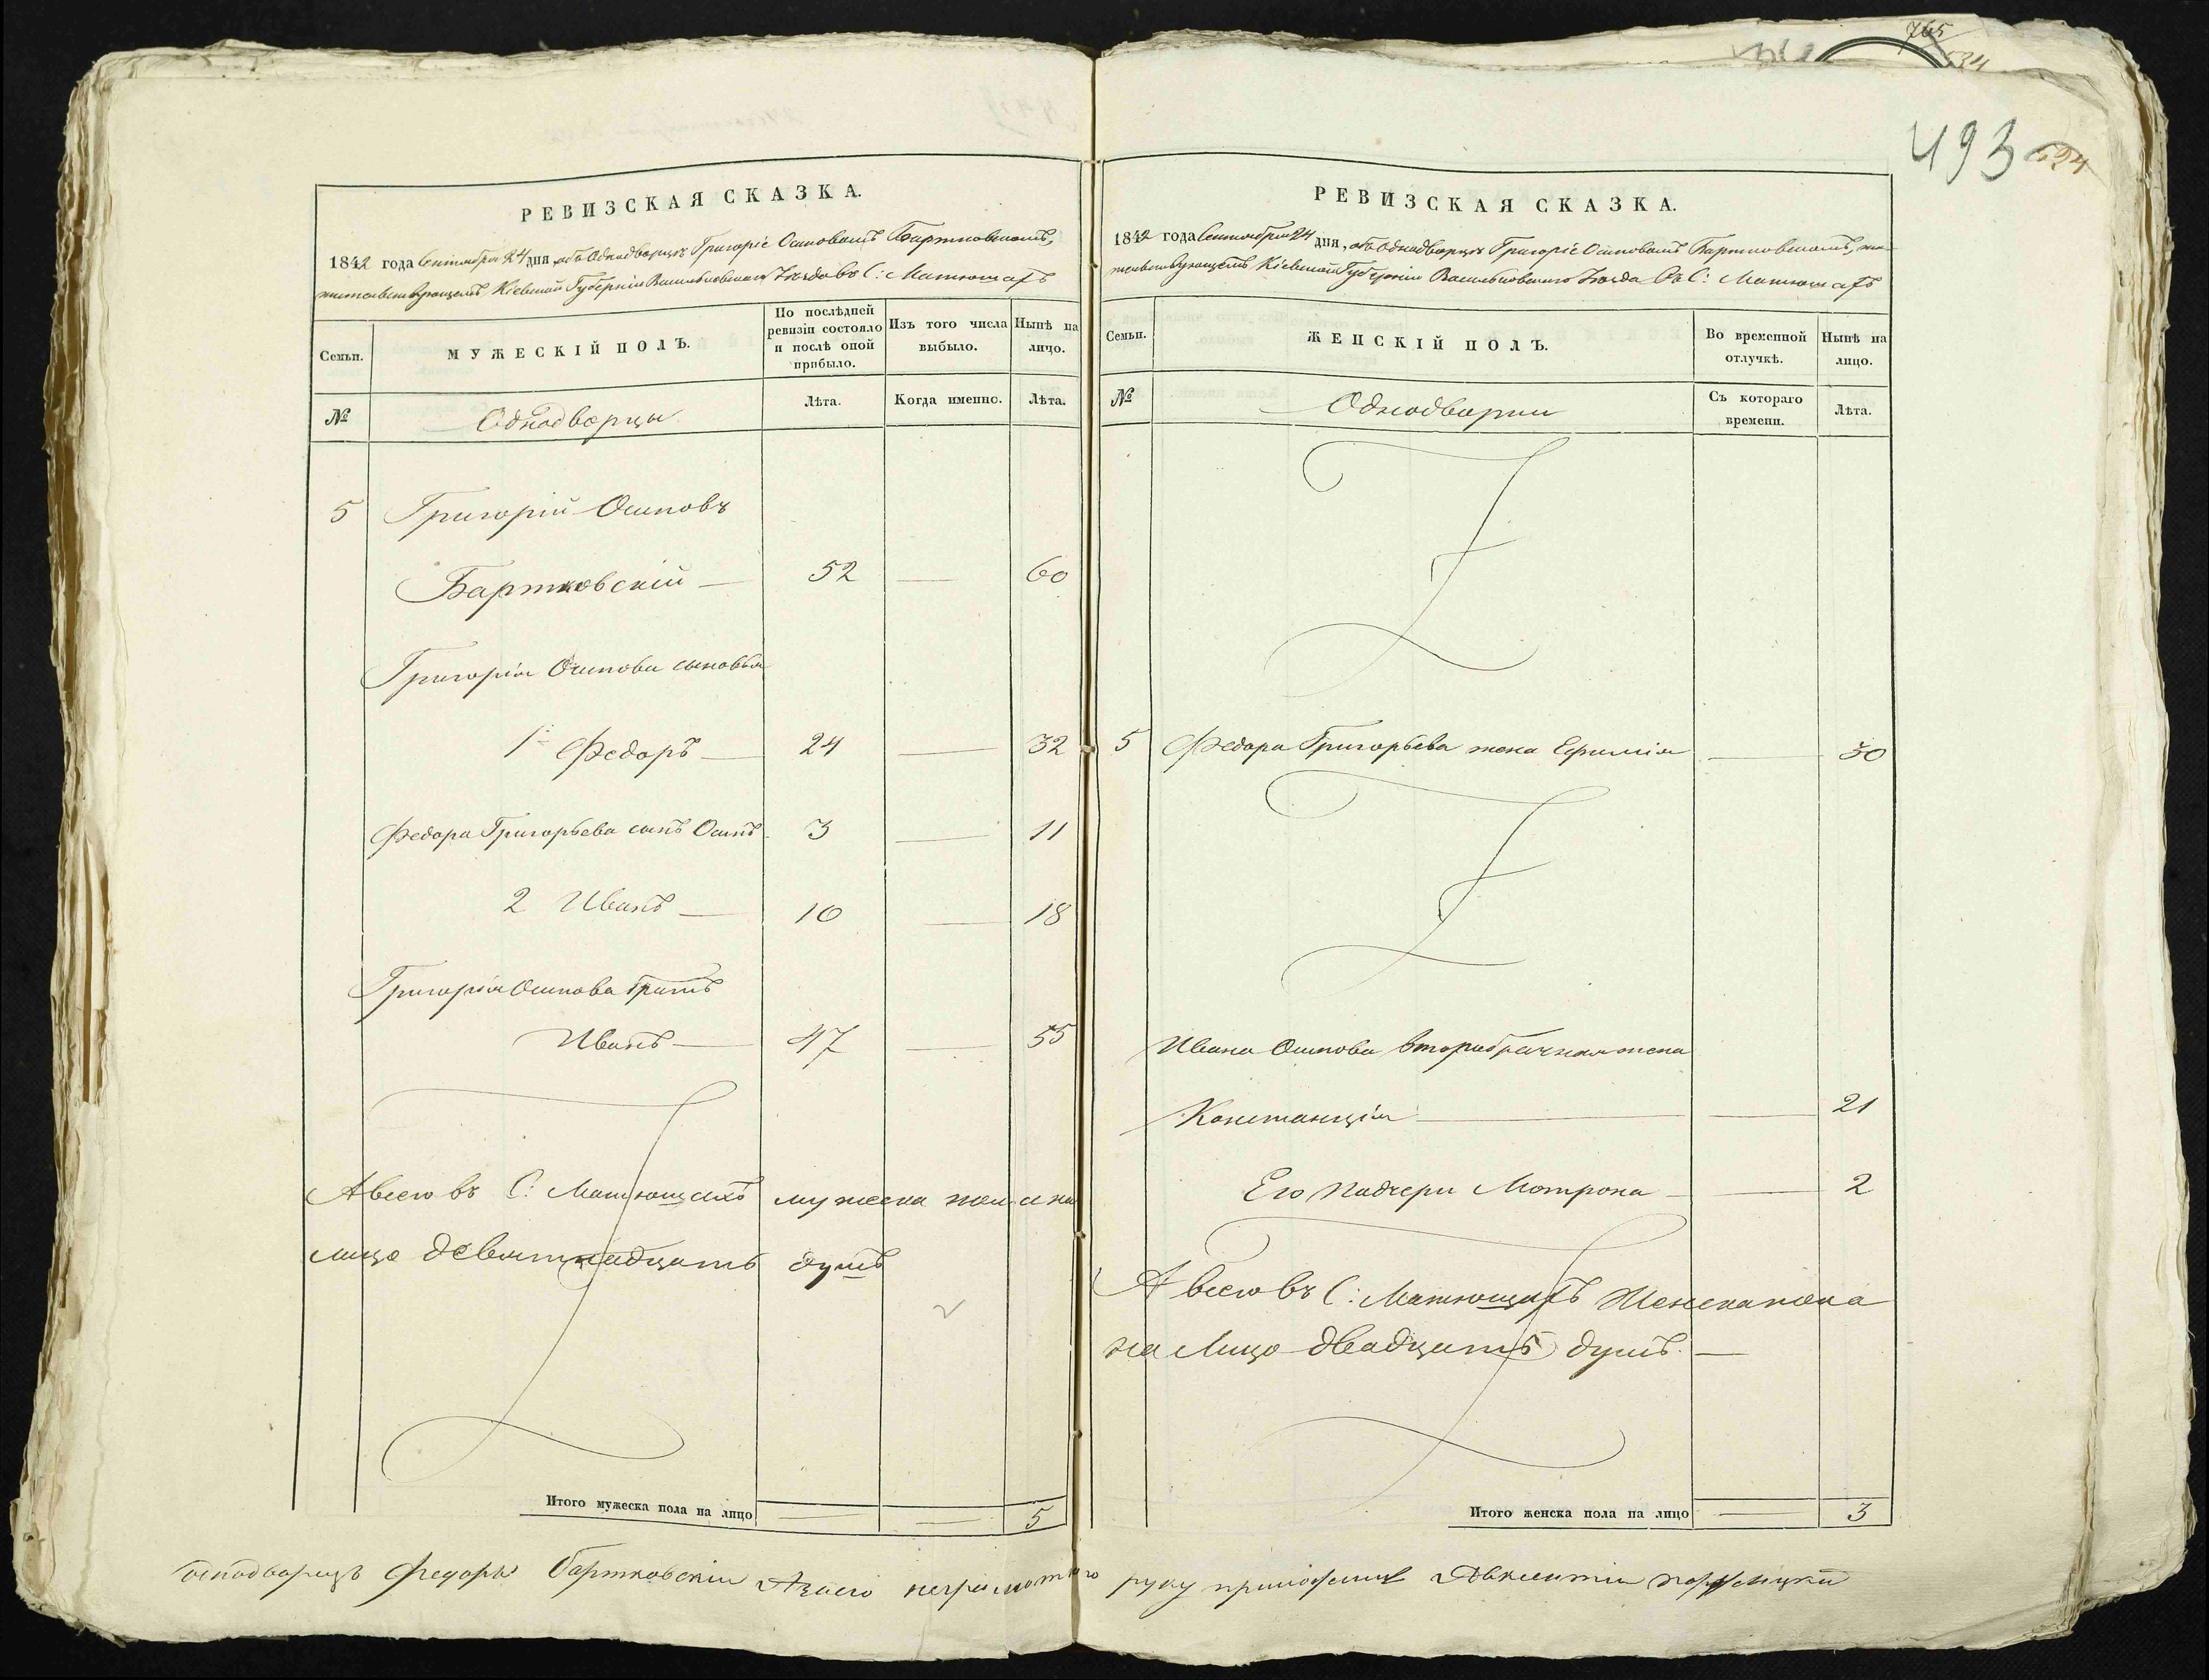 765
534
493
РЕВИЗСКАЯ СКАЗКА.
1842 года Сентября 24 дня, объ Однодворцѣ Григоріе Осиповомъ Бартковскомъ,
жительствующемъ Кіевской Губерніи Васильковскаго Уѣзда въ С: Матюшахъ
Семьи.
МУЖЕСКІЙ ПОЛЪ.
По послѣдней ревизіи состояло и послѣ оной прибыло.
Изъ того числа выбыло.
Нынѣ на лицо.
№
Однодворцы
Лѣта.
Когда именно.
Лѣта.
5 Григорій Осиповъ
Бартковскій — 52 — 60
Григорія Осипова сыновья
1й Федоръ — 24 — 32
Федора Григорьева сынъ Осипъ 3 — 11
2 Иванъ — 10 — 18
Григорія Осипова братъ
Иванъ — 47 — 55
А всего въ С: Матюшахъ мужеска пола на
лицо девятнадцать душъ
Итого мужеска пола на лицо — — 5
РЕВИЗСКАЯ СКАЗКА.
1842 года Сентября 24 дня, объ Однодворцѣ Григоріе Осиповомъ Бартковскомъ, жи-
тельствующемъ Кіевской Губерніи Васильковскаго Уѣзда въ С: Матюшахъ
Семьи.
ЖЕНСКІЙ ПОЛЪ.
Во временной отлучкѣ.
Нынѣ на лицо.
№
Однодворки
Съ котораго времени.
Лѣта.
5 Федора Григорьева жена Ефимія — 30
Ивана Осипова второбрачная жена
Констанція — — 21
Его падчери Мотрона — — 2
А всего въ С: Матюшахъ Женска пола
на Лицо двадцать душъ. —
Итого женска пола на лицо — 3
однодворецъ Федоръ Бартковскій А за его неграмотного руку приложилъ Авксентій